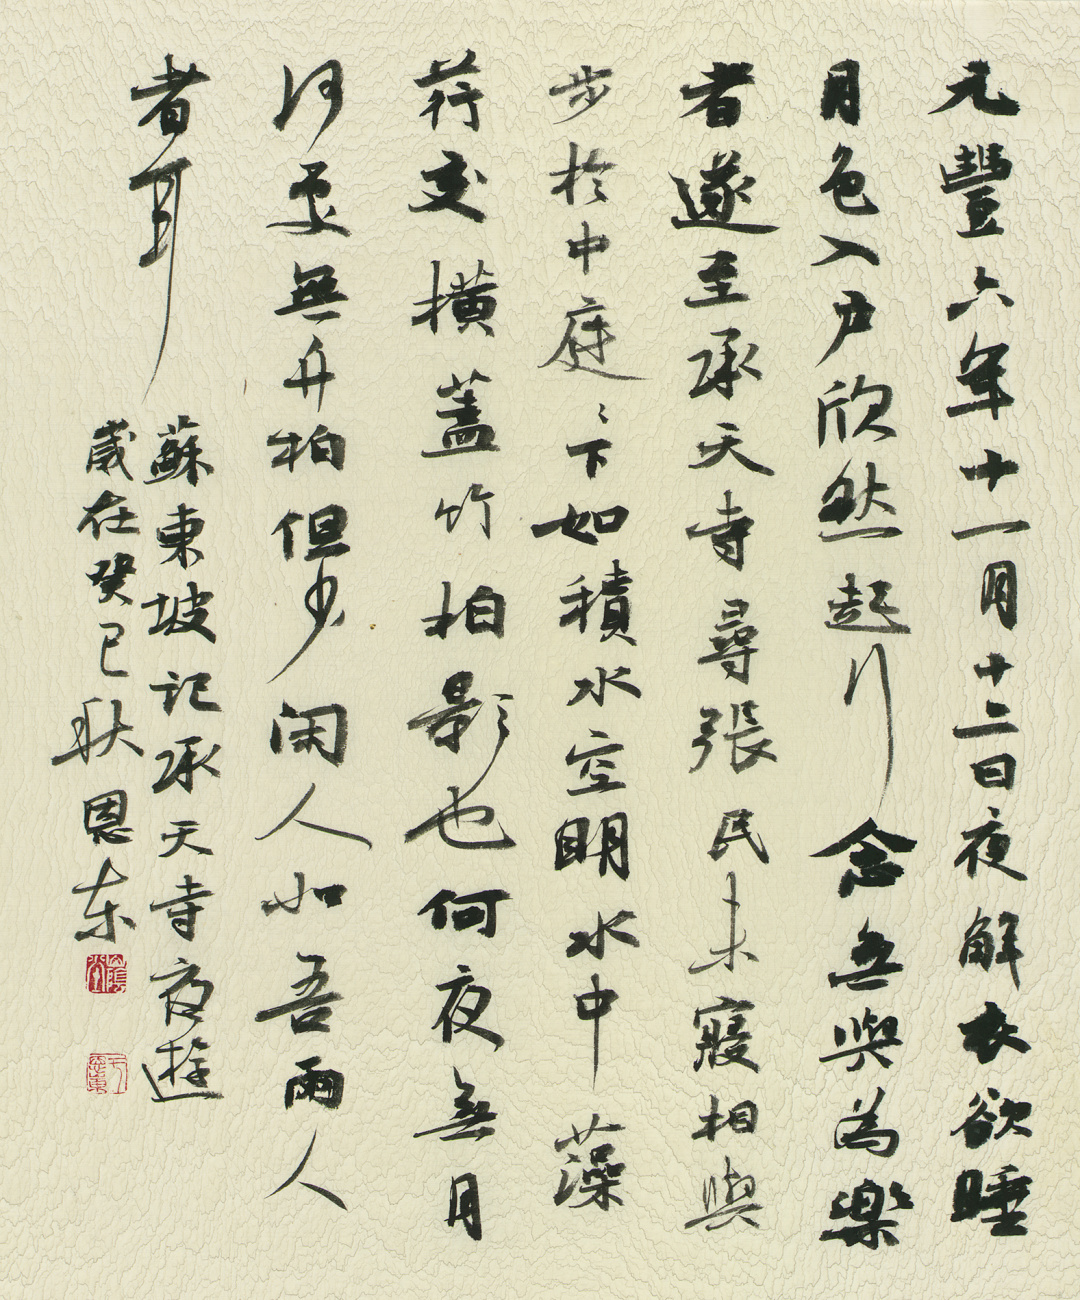 元豐六年十一月十二日夜解衣欲睡
月色入户欣然起行念無與為樂
者遂至承天寺尋張民未寢相與
步於中庭〻下如積水空明水中藻
荇交橫蓋竹柏影也何夜無月
何處無竹柏但少閑人如吾兩人
者耳
蘇東坡記承天寺夜遊
歲在癸巳秋恩東